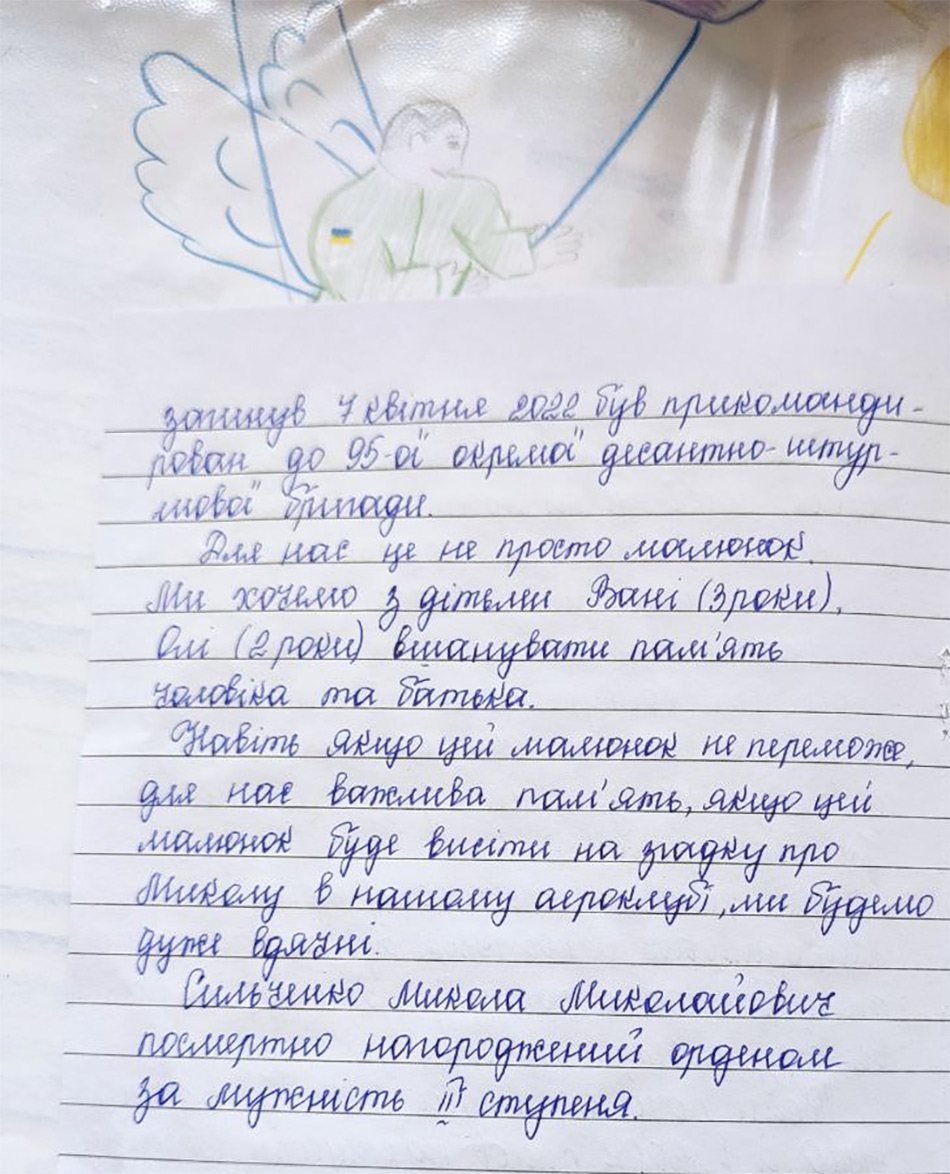 загинув 7 квітня 2022 був прикоманди-
рован до 95-ої окремої десантно-штур-
мової бригади.
Для нас це не просто малюнок.
Ми хочемо з дітьми Вані (3 роки),
Олі (2 роки) вшанувати пам'ять
чоловіка та батька.
Навіть якщо цей малюнок не переможе,
для нас важлива пам'ять, якщо цей
малюнок буде висіти на згадку про
Миколу в нашому аероклубі, ми будемо
дуже вдячні.
Сильченко Микола Миколайович
посмертно нагороджений орденом
за мужність III ступеня.